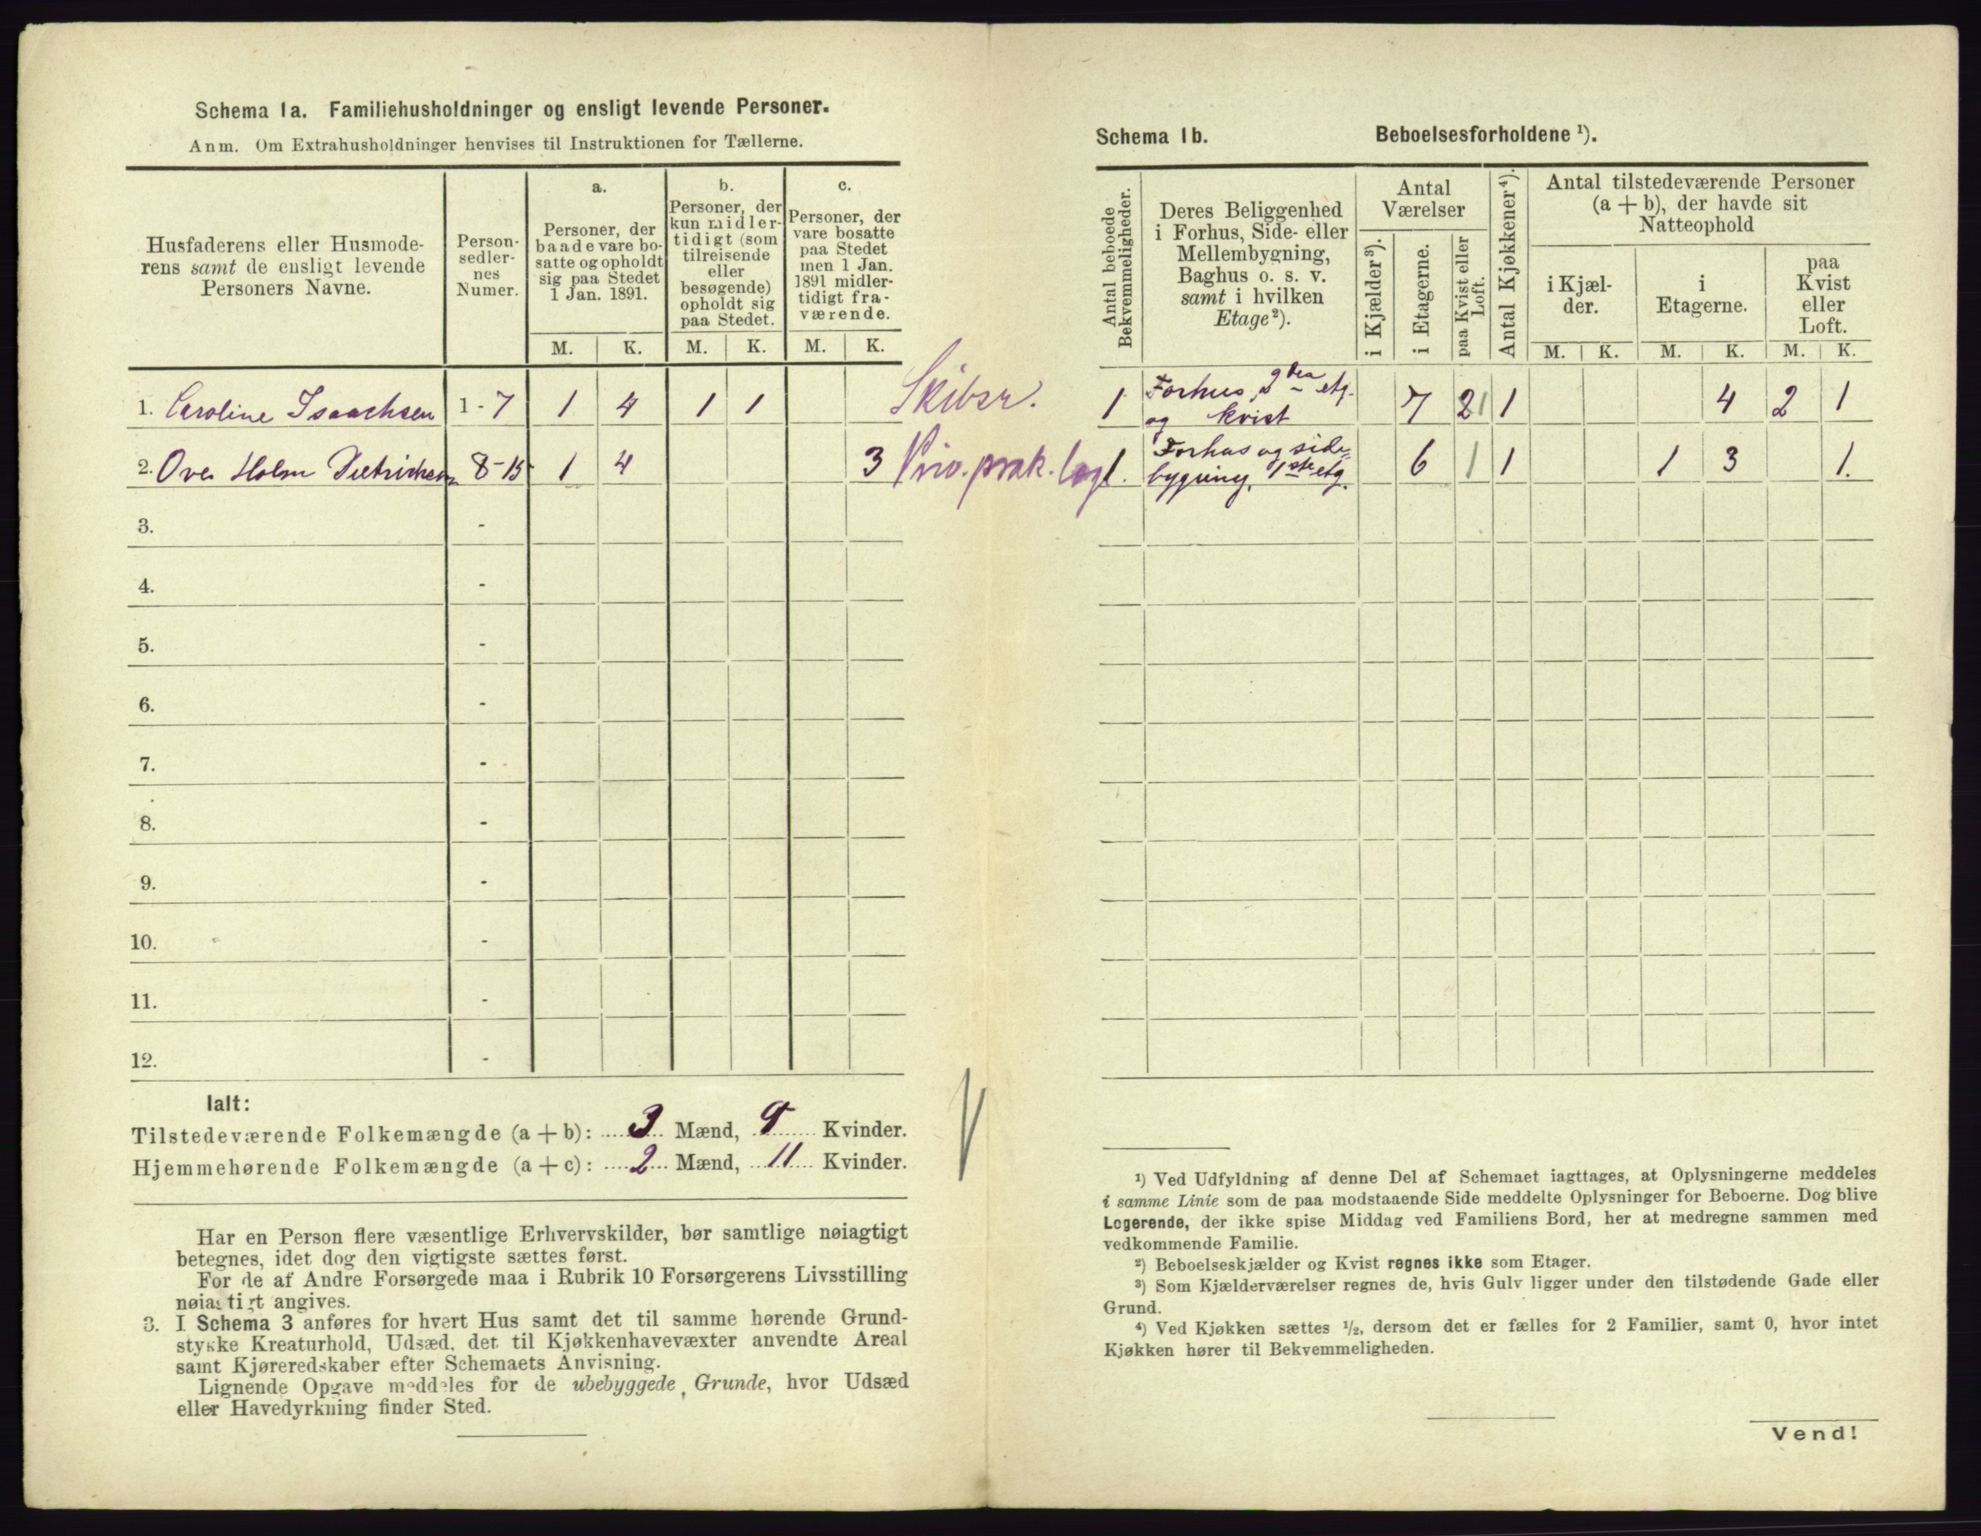 Schema 1a. Familiehusholdninger og ensligt levende Personer.
Anm. Om Extrahusholdninger henvises til Instruktionen for Tællerne.
Husfaderens eller Husmode-
rens samt de ensligt levende
Personers Navne.
Person-
sedler-
nes
Numer.
a.
Personer, der
baade vare bo-
satte og opholdt
sig paa Stedet
1 Jan. 1891.
b.
Personer, der
kun midler-
tidigt (som
tilreisende
eller
besøgende)
opholdt sig
paa Stedet.
c.
Personer, der
vare bosatte
paa Stedet
men 1 Jan.
1891 midler-
tidigt fra-
værende.
M. K. M. K. M. K.
1. Caroline Isaachsen 1-7 1 4 1 1 Skibsr.
2. Ove Holm Dietrichsen 8-15 1 4 3 Priv. prak. læg
3. -
4. -
5. -
6. -
7. -
8. -
9. -
10. -
11. -
12. -
Ialt:
Tilstedeværende Folkemængde (a + b): 3 Mænd, 9 Kvinder.
Hjemmehørende Folkemængde (a + c): 2 Mænd, 11 Kvinder.
Har en Person flere væsentlige Erhvervskilder, bør samtlige nøiagtigt
betegnes, idet dog den vigtigste sættes først.
For de af Andre Forsørgede maa i Rubrik 10 Forsørgerens Livsstilling
nøiagtigt angives.
3. I Schema 3 anføres for hvert Hus samt det til samme hørende Grund-
stykke Kreaturhold, Udsæd, det til Kjøkkenhavevæxter anvendte Areal
samt Kjøreredskaber efter Schemaets Anvisning.
Lignende Opgave meddeles for de ubebyggede Grunde, hvor Udsæd
eller Havedyrkning finder Sted.
Schema 1b. Beboelsesforholdene ¹).
Antal beboede
Bekvemmeligheder.
Deres Beliggenhed
i Forhus, Side- eller
Mellembygning,
Baghus o. s. v.
samt i hvilken
Etage²).
Antal
Værelser
i Kjælder³).
i Etagerne.
paa Kvist eller
Loft.
Antal Kjøkkener⁴).
Antal tilstedeværende Personer
(a + b), der havde sit
Natteophold
i Kjæl-
der.
i
Etagerne.
paa
Kvist
eller
Loft.
M. K. M. K. M. K.
1 Forhus, 2den etg.
og kvist 7 2 1 1 4 2 1
1. Forhus og side-
bygning, 1ste etg. 6 1 1 1 3 1.
¹) Ved Udfyldning af denne Del af Schemaet iagttages, at Oplysningerne meddeles
i samme Linie som de paa modstaaende Side meddelte Oplysninger for Beboerne. Dog blive
Logerende, der ikke spise Middag ved Familiens Bord, her at medregne sammen med
vedkommende Familie.
²) Beboelseskjælder og Kvist regnes ikke som Etager.
³) Som Kjælderværelser regnes de, hvis Gulv ligger under den tilstødende Gade eller
Grund.
⁴) Ved Kjøkken sættes ½, dersom det er fælles for 2 Familier, samt 0, hvor intet
Kjøkken hører til Bekvemmeligheden.
Vend!